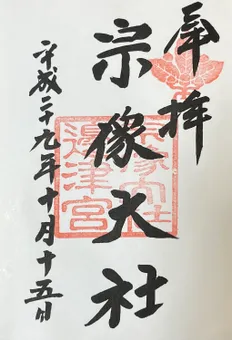 奉拝
宗像大社
平成二十九年十月十五日
宗像大社
邊津宮